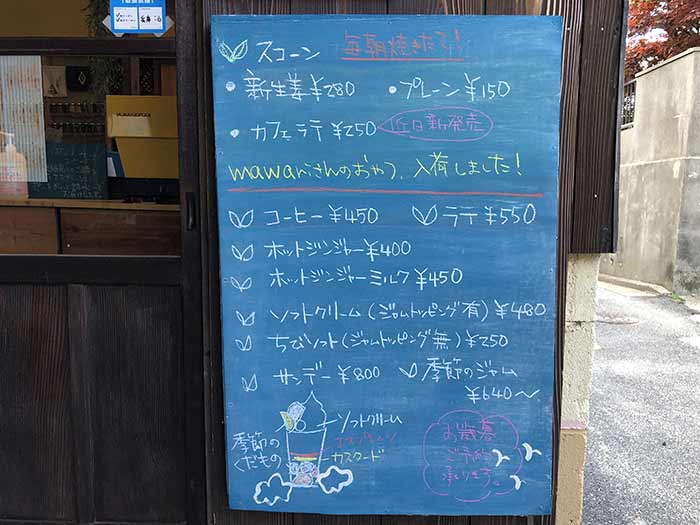 スコーン 毎朝焼きたて!
・新生姜¥280 ・プレーン¥150
・カフェラテ¥250 近日新発売
mawariさんのおやつ、入荷しました!
コーヒー¥450 ラテ¥550
ホットジンジャー¥400
ホットジンジャーミルク¥450
ソフトクリーム(ジャムトッピング有)¥480
ちびソフト(ジャムトッピング無)¥250
サンデー¥800 季節のジャム
¥640〜
ソフトクリーム
季節の
くだもの
カスタード
お歳暮
ご予約
承ります。